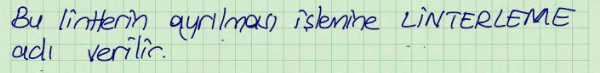 Bu lintterin ayrılması işlemine LİNTERLEME
adı verilir.